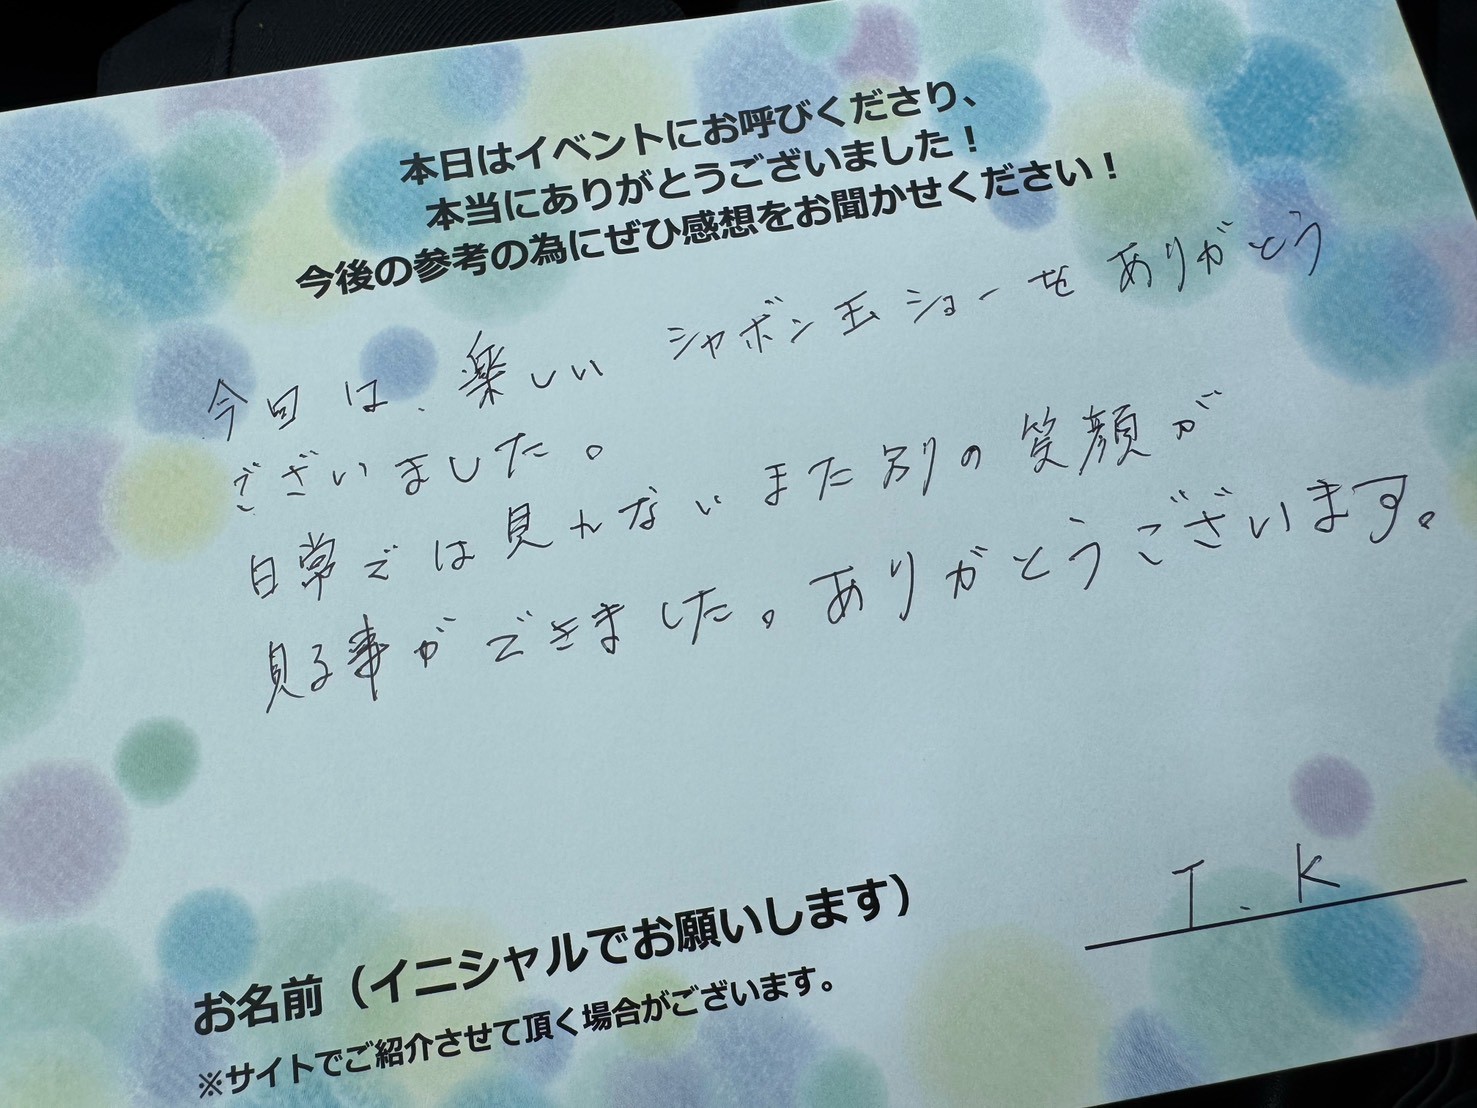 本日はイベントにお呼びくださり、
本当にありがとうございました！
今後の参考の為にぜひ感想をお聞かせください！
今日は、楽しい シャボン玉ショーをありがとう
ございました。
日常では見れないまた別の笑顔が
見る事ができました。ありがとうございます。
お名前（イニシャルでお願いします）
T.K
※サイトでご紹介させて頂く場合がございます。